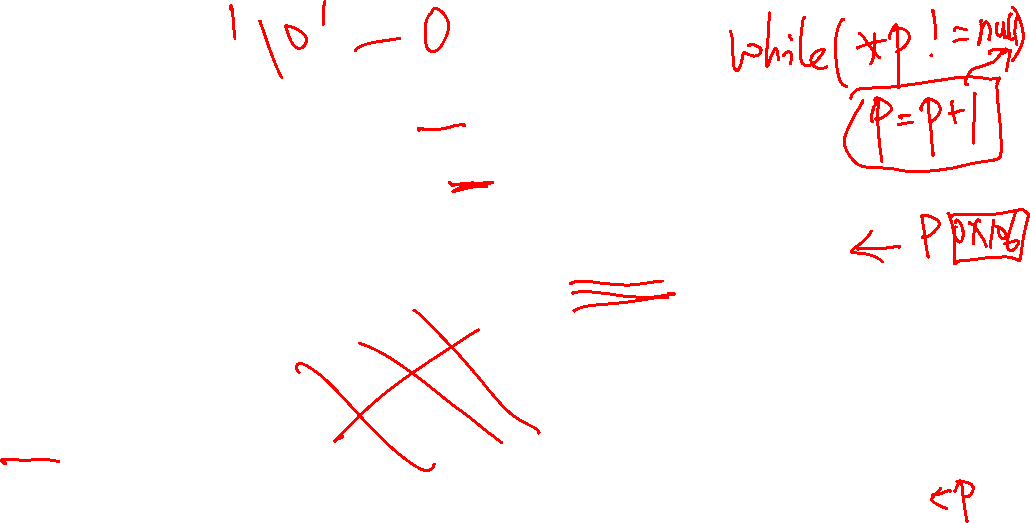 '\0' — 0
while(*p != null)
p=p+1
P 0x106
←P